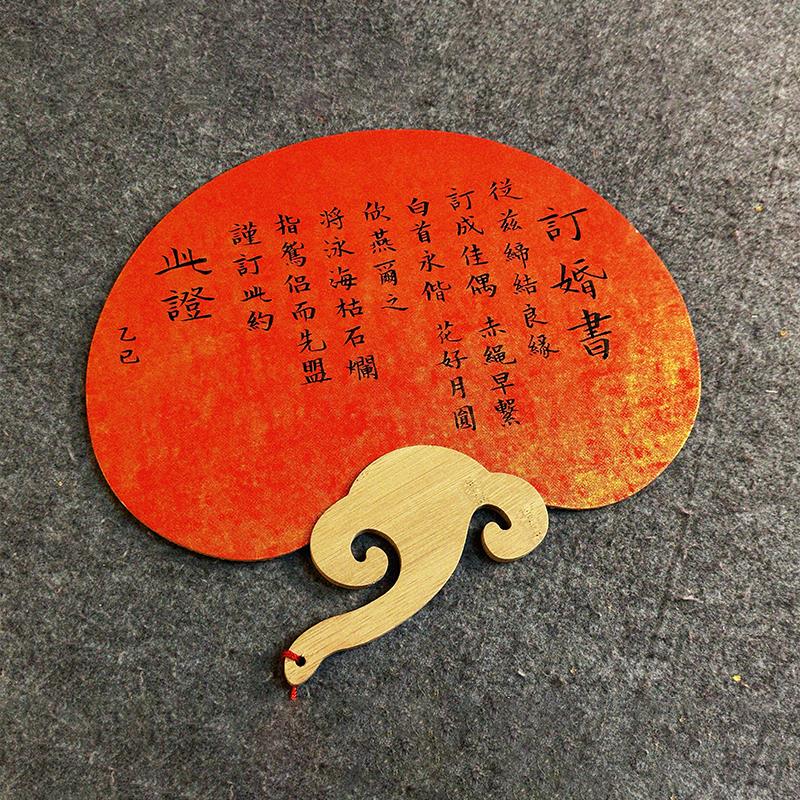 訂婚書
從茲締結良緣
訂成佳偶 赤繩早繫
白首永偕 花好月圓
欣燕爾之
將泳海枯石爛
指鴛侶而先盟
謹訂此約
此證
乙巳